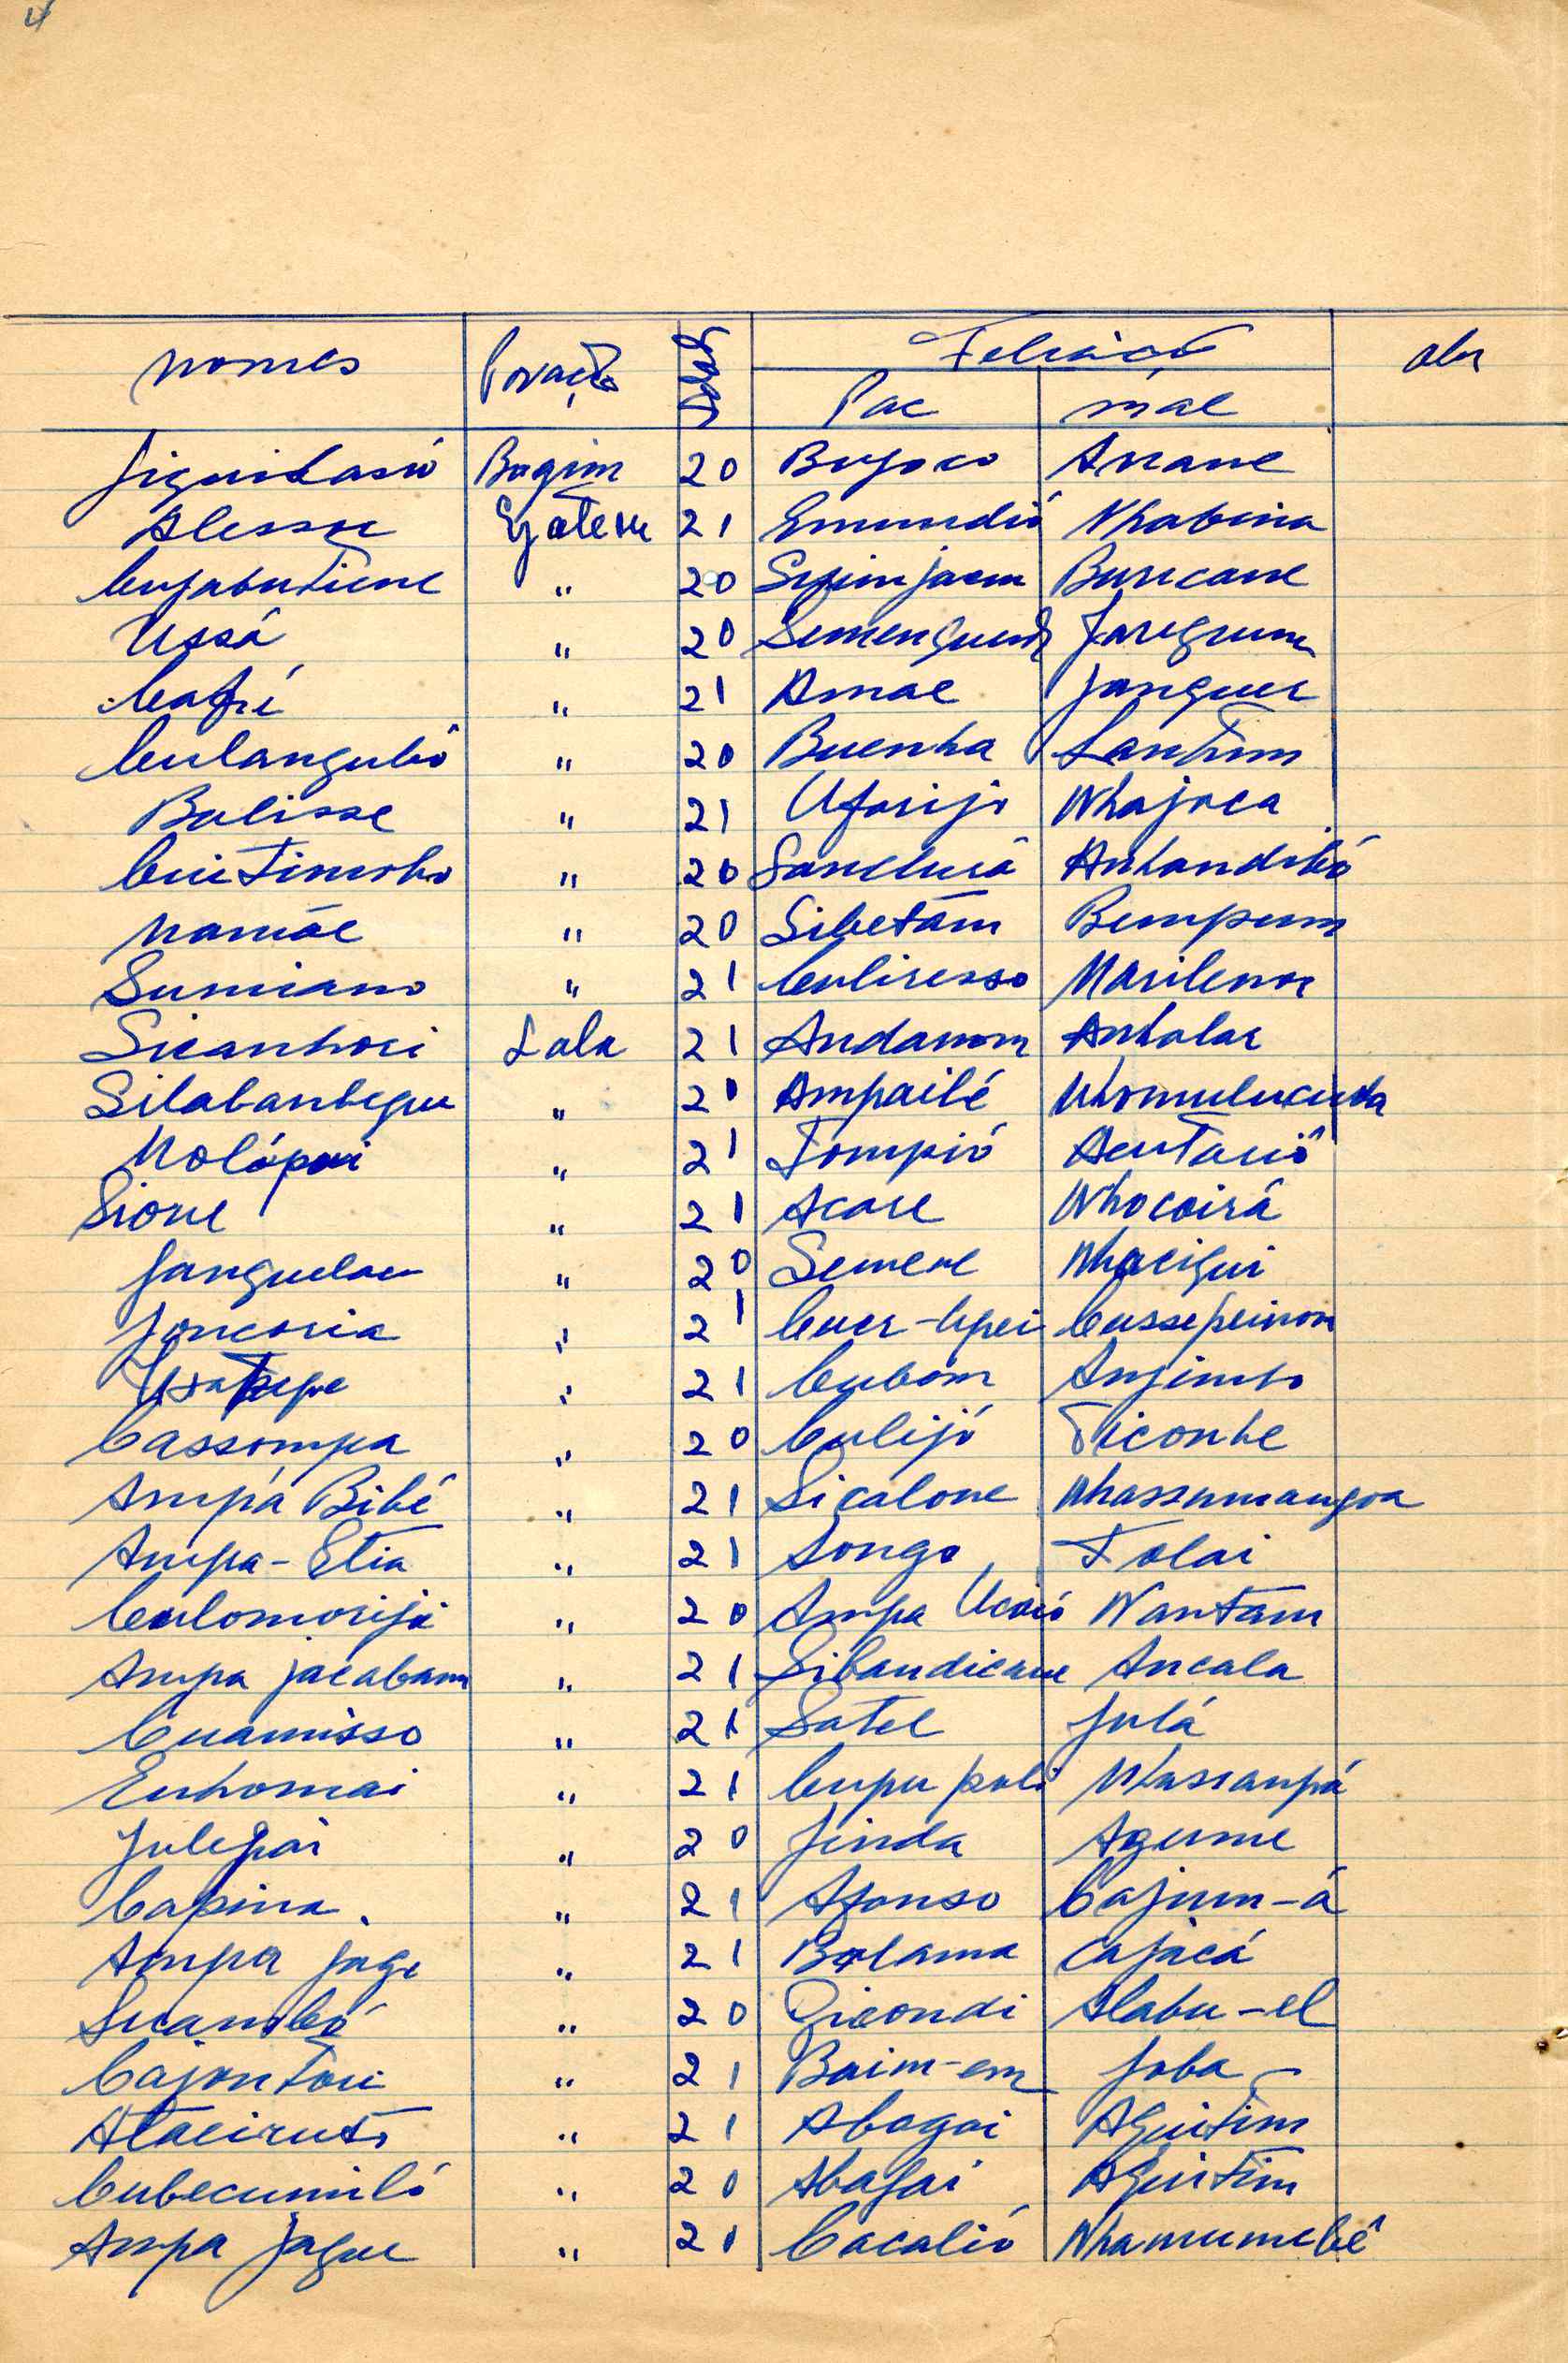 4
Nomes Povação Idade Feliação Obs
Pae Mãe
Jiguidasió Bagim 20 Bujoco Anane
Alessu Ejatem 21 Emundió Nhabina
Cujabutiene " 20 Buncane
Ussá " 20 Jaregrum
Cafié " 21 Amae Janguer
Culangubô " 20 Buenha Lantim
Balisse " 21 Ufarijo Nhajoca
Cuitimoho " 20 Sancluiá Anhandibó
Namáe " 20 Sibetám Bempum
Sumiano " 21 Culiresso Marilenor
Sicanhoci Lala 21 Andamom Anhalar
Silabanhegue " 21 Ampailé
Nolópai " 21 Tompió Acutariô
Sione " 21 Acare Nhocoirá
Janguelae " 20 Semene Nhacigui
Joncoria " 21 Cuer-Upei Cussepeinom
" 21 Cubom Anjimho
Cassompa " 20 Culijó Ticonhe
Ampá Bibé " 21 Sicalone Nhassumangoa
Ampa-Etia " 21 Songo Tolai
Culomorijó " 20 Ampa Ucaió Nantam
Ampa jacabam " 21 Sibandicane Ancala
Cuamisso " 21 Satel Julá
Enhomai " 21 Cupu pali Nhassanpá
Julepai " 20 Jinda Agume
Capina. " 21 Afonso Cajum-á
Ampa jage " 21 Bolama Cajacá
Sucambó " 20 Ticondi Alabu-el
Cajontoci " 21 Baim-em Joba
Ataciruto " 21 Abagai Aguitim
Cubecumiló " 20 Abagai Aguitim
Ampa Jague " 21 Cacalió Nhamumebê